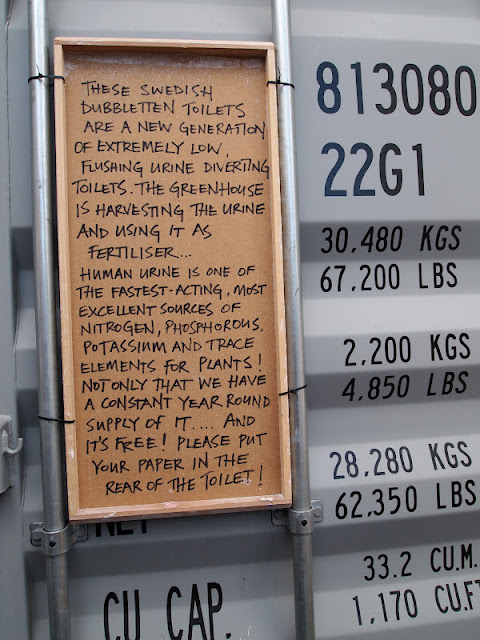 THESE SWEDISH
DUBBLETTEN TOILETS
ARE A NEW GENERATION
OF EXTREMELY LOW,
FLUSHING URINE DIVERTING
TOILETS. THE GREENHOUSE
IS HARVESTING THE URINE
AND USING IT AS
FERTILISER...
HUMAN URINE IS ONE OF
THE FASTEST-ACTING, MOST
EXCELLENT SOURCES OF
NITROGEN, PHOSPHOROUS,
POTASSIUM AND TRACE
ELEMENTS FOR PLANTS!
NOT ONLY THAT WE HAVE
A CONSTANT YEAR ROUND
SUPPLY OF IT.... AND
IT'S FREE! PLEASE PUT
YOUR PAPER IN THE
REAR OF THE TOILET!
813080
22G1
30,480 KGS
67,200 LBS
2,200 KGS
4,850 LBS
28,280 KGS
62,350 LBS
NET
33.2 CU.M.
CU. CAP. 1,170 CU.FT